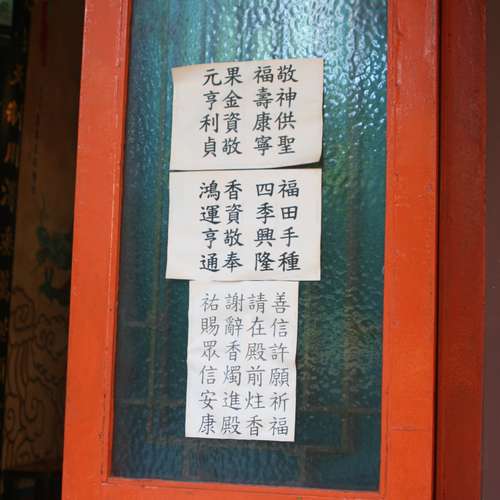 敬神供聖
福壽康寧
果金資敬
元亨利貞
福田手種
四季興隆
香資敬奉
鴻運亨通
善信許願祈福
請在殿前炷香
謝辭香燭進殿
祐賜眾信安康